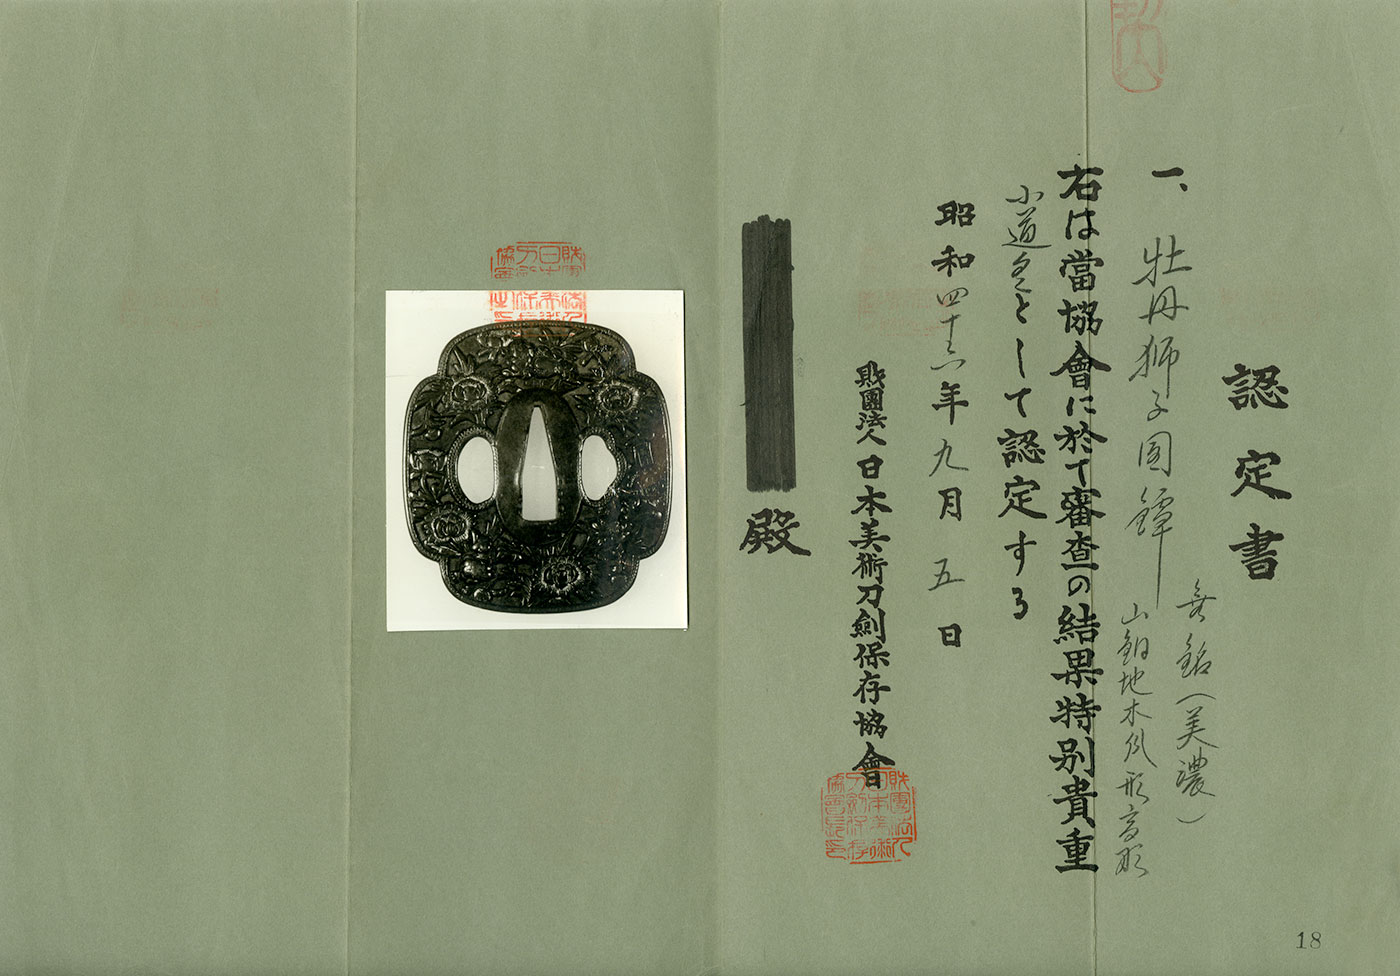 認定書
一、牡丹獅子図鐔
無銘(美濃)
山銅地木瓜形高彫
右は當協會に於て審査の結果特別貴重
小道具として認定する
昭和四十六年九月五日
財團法人日本美術刀劍保存協會
殿
財團法人日本美術刀劍保存協會
18